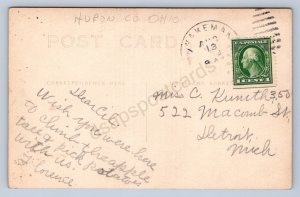 HURON CO OHIO
POST CARD
WAKEMAN
AUG
13
CORRESPONDENCE HERE
Dear C
Wish you were here
to climb the apple
tree & pick potatoes
with us.
Florence
Miss C. Kunith 3.50
522 Macomb St,
Detroit,
Mich